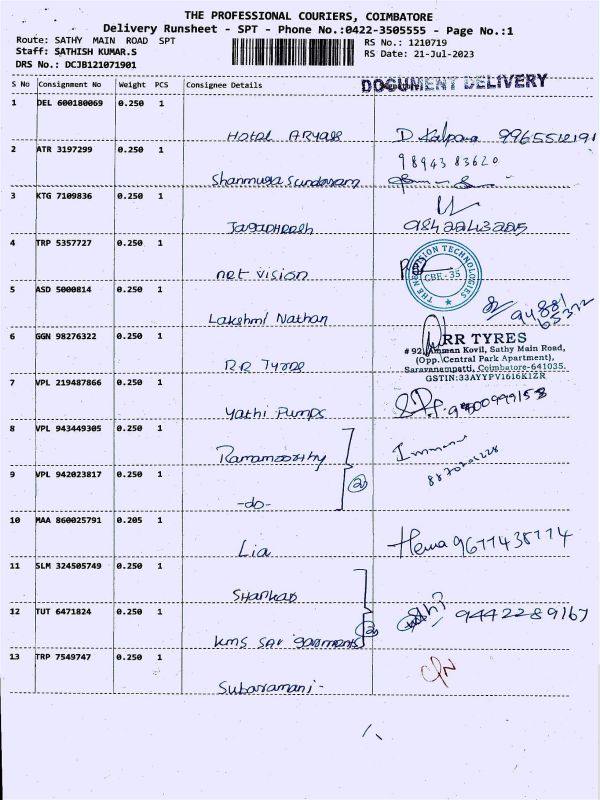 THE PROFESSIONAL COURIERS, COIMBATORE
Delivery Runsheet - SPT - Phone No.:0422-3505555 - Page No.:1
Route: SATHY MAIN ROAD SPT
RS No.: 1210719
Staff: SATHISH KUMAR.S
RS Date: 21-Jul-2023
DRS No.: DCJB121071901
S No Consignment No Weight PCS Consignee Details
DOCUMENT DELIVERY
1 DEL 600180069 0.250 1
Hotel ARyaas D. Kalpana
2 ATR 3197299 0.250 1
9894383620
Shanmuga Sundaram
3 KTG 7109836 0.250 1
Jagadheesh
4 TRP 5357727 0.250 1
net vision
THE NET VISION TECHNOLOGIES
CBE-35
5 ASD 5000814 0.250 1
Lakshmi Nathan
6 GGN 98276322 0.250 1
RR Tyres
RR TYRES
# 92, Amman Kovil, Sathy Main Road,
(Opp. Central Park Apartment),
Saravanampatti, Coimbatore-641035.
GSTIN:33AYYPV1616K1ZR
7 VPL 219487866 0.250 1
Yathi Pumps
8 VPL 943449305 0.250 1
Ramamoorthy
9 VPL 942023817 0.250 1
-do- 2
10 MAA 860025791 0.205 1
Lia Hema
11 SLM 324505749 0.250 1
Shankar
12 TUT 6471824 0.250 1
9442289167
kms sai garments 2
13 TRP 7549747 0.250 1
Subaramani -